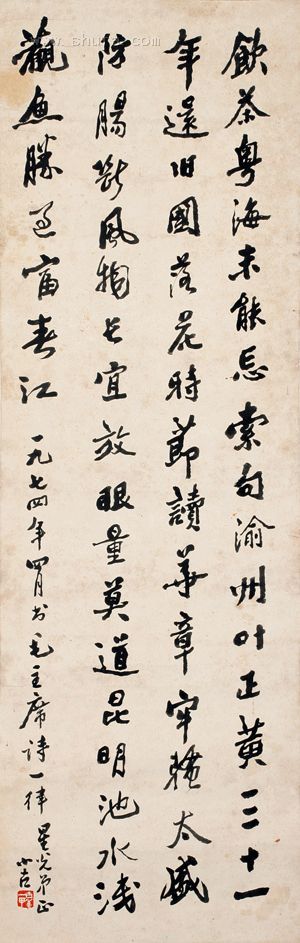 飲茶粵海未能忘索句渝州叶正黃三十一
年還旧國落花時節讀華章牢騷太盛
防腸斷風物长宜放眼量莫道昆明池水浅
觀魚勝过富春江
一九七四年四月书毛主席詩一律
星光弟正